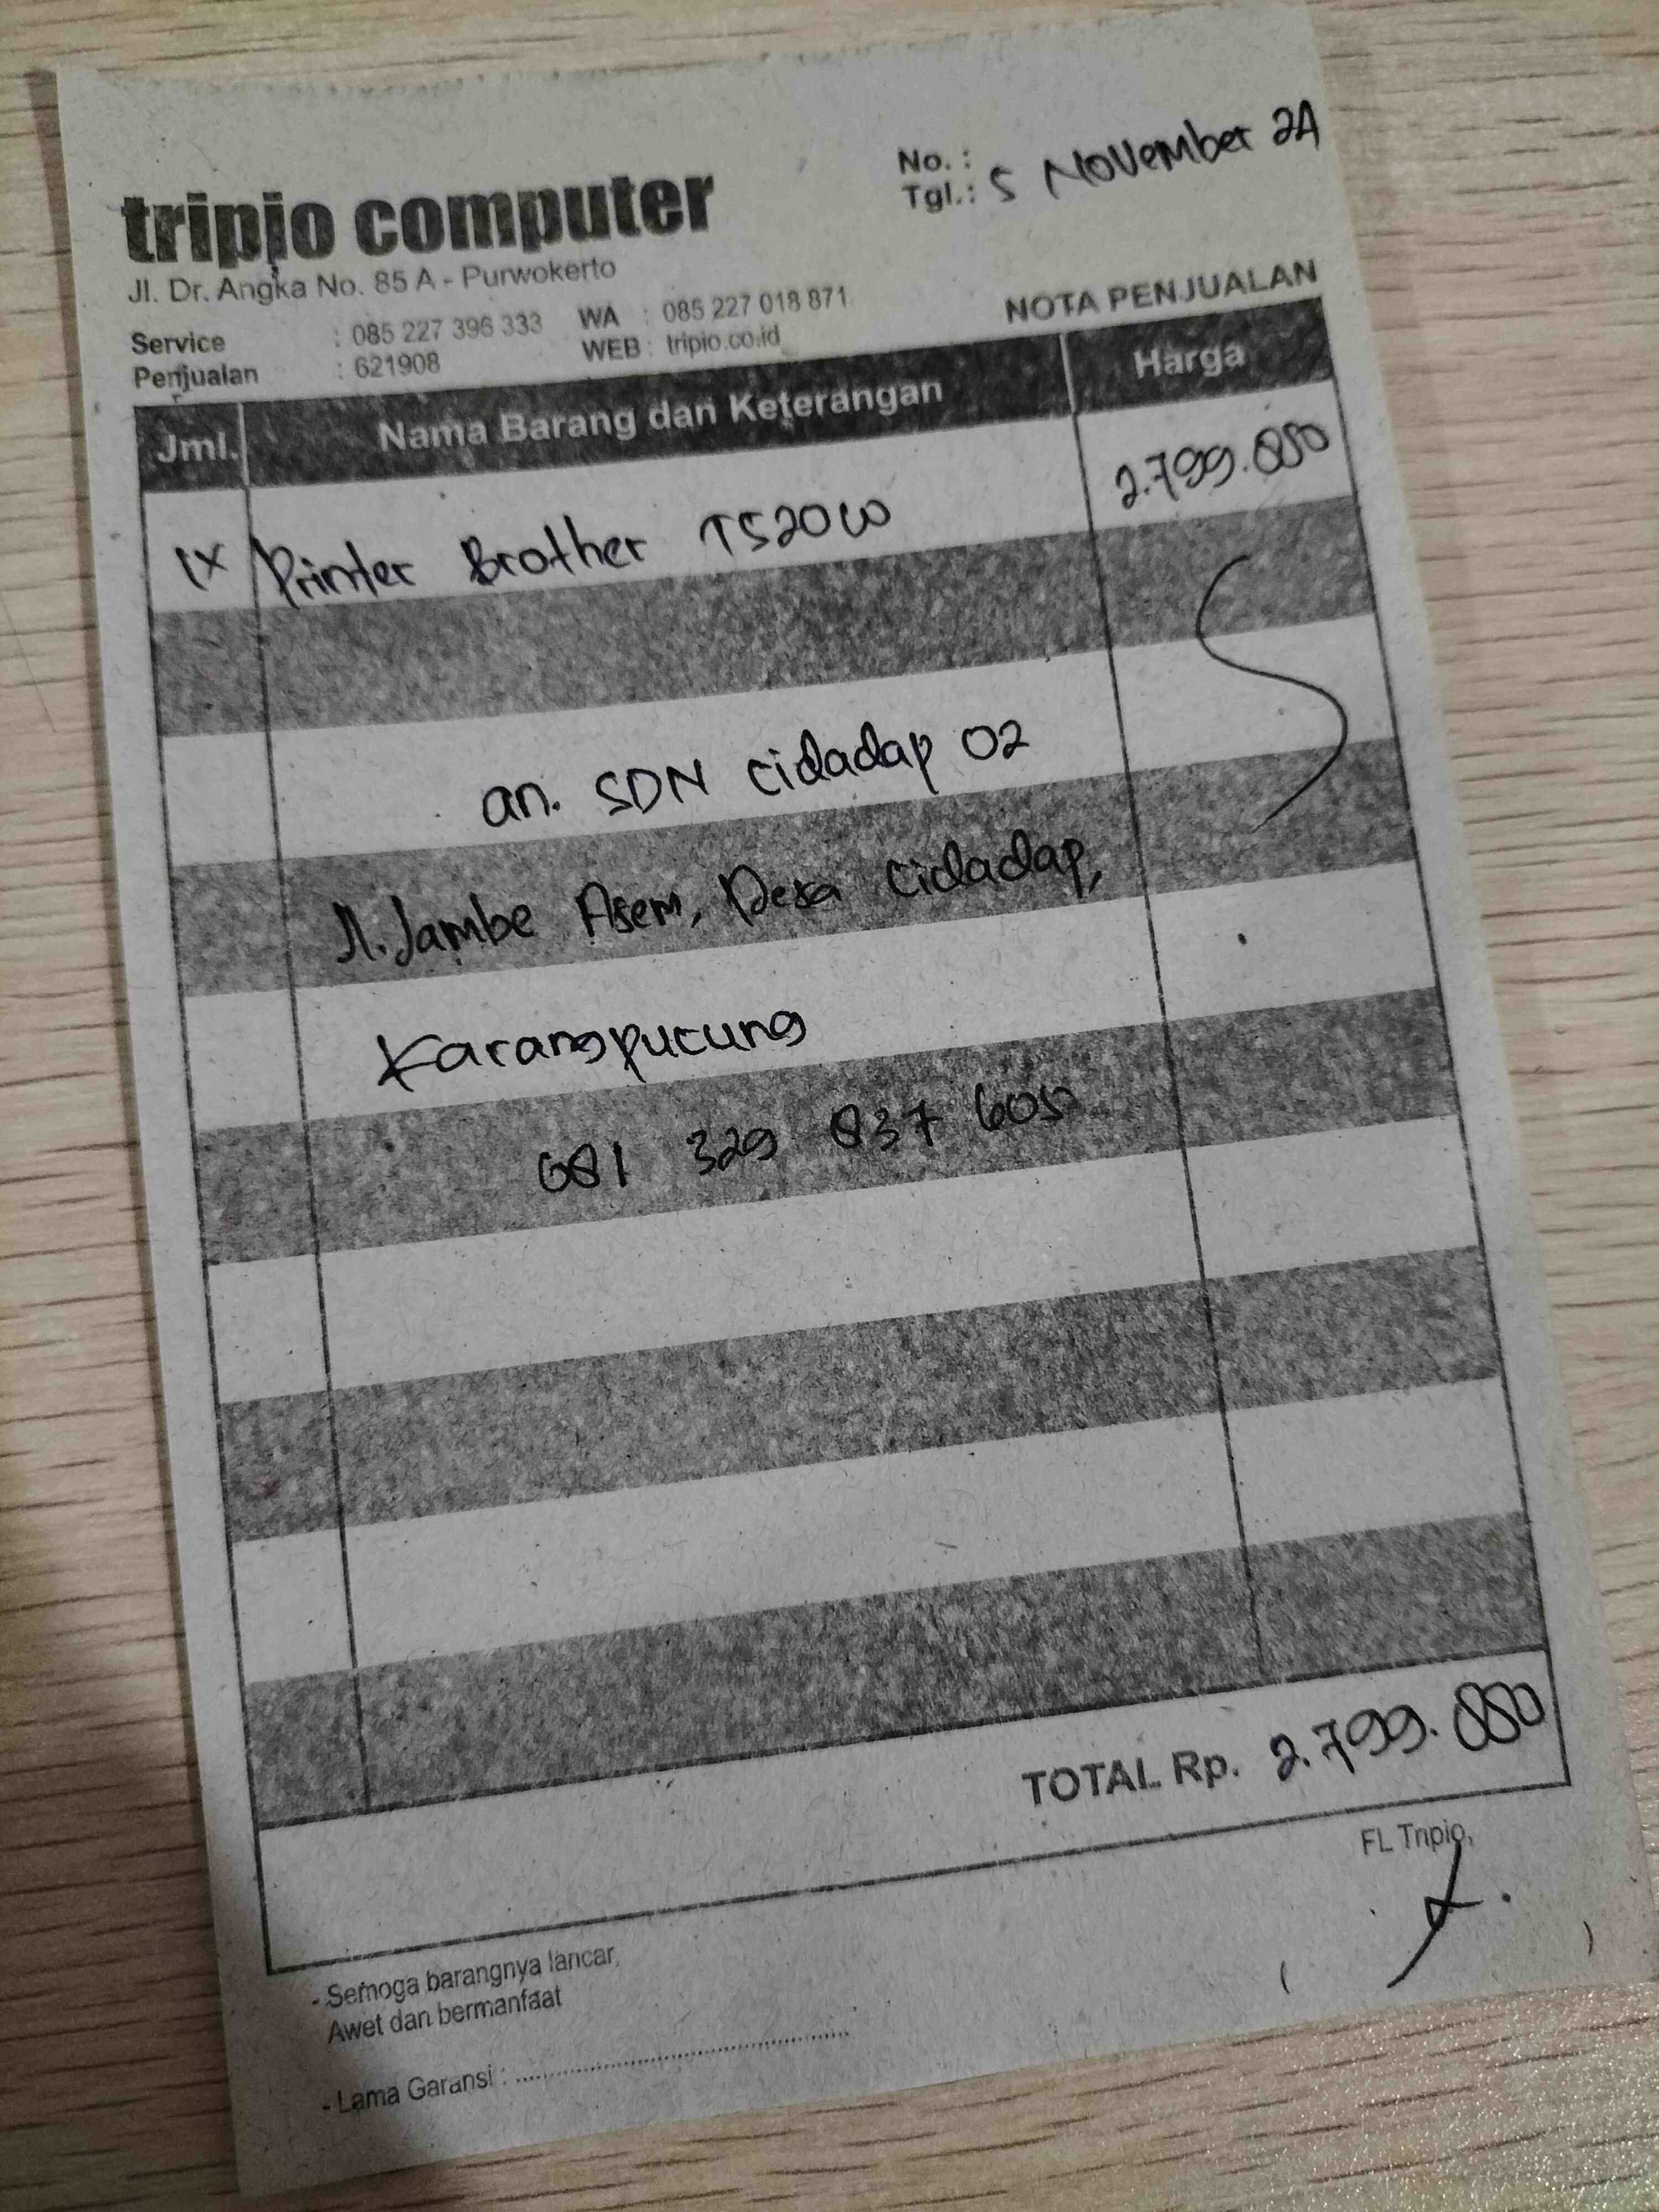 No. :
Tgl.: 5 November 24
tripio computer
Jl. Dr. Angka No. 85 A - Purwokerto
Service : 085 227 396 333 WA : 085 227 018 871
Penjualan : 621908 WEB : tripio.co.id
NOTA PENJUALAN
Jml. Nama Barang dan Keterangan Harga
1x Printer Brother T520W 2.799.000
an. SDN Cidadap 02
Jl. Jambe Asem, Desa Cidadap,
Karangpucung
081 329 837 605
TOTAL Rp. 2.799.000
FL Tripio,
- Semoga barangnya lancar,
Awet dan bermanfaat
- Lama Garansi : ..............................